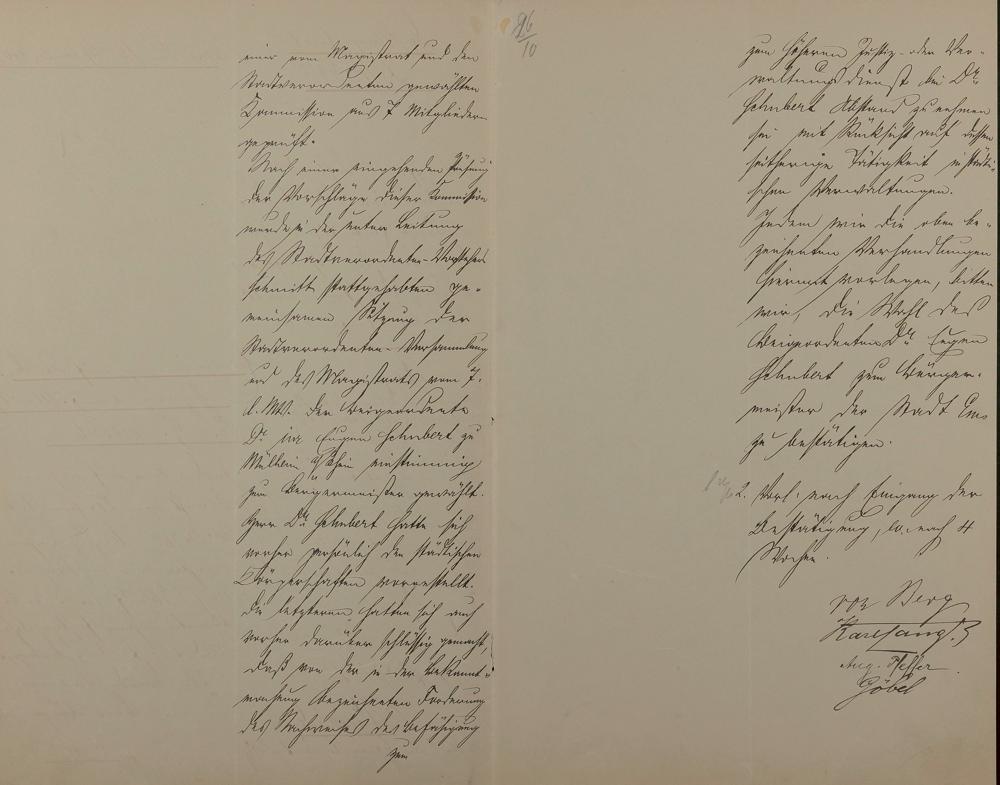 einer vom Magistrat und den
Stadtverordneten gewählten
Kommission aus 7 Mitgliedern
geprüft.
Nach einer eingehenden Prüfung
der Vorschläge dieser Kommission
wurde in der unter Leitung
des Stadtverordneten-Vorstehers
Schmitt stattgehabten ge-
meinsamen Sitzung der
Stadtverordneten-Versammlung
und des Magistrats vom 7.
d. Mts. der Beigeordnete
Dr. jur Eugen Schubert zu
Mülheim a/Rhein einstimmig
zum Bürgermeister gewählt.
Herr Dr. Schubert hatte sich
vorher persönlich den städtischen
Körperschaften vorgestellt.
Die letzteren hatten sich auch
vorher darüber schlüssig gemacht,
daß von der in der Bekannt-
machung bezeichneten Forderung
des Nachweises der Befähigung
zum
96/10
zum höheren Justiz- oder Ver-
waltungsdienst bei Dr.
Schubert Abstand zu nehmen
sei mit Rücksicht auf dessen
seitherige Tätigkeit in städti-
schen Verwaltungen.
Indem wir die oben be-
zeichneten Verhandlungen
hiermit vorlegen, bitten
wir, die Wahl des
Beigeordneten Dr. Eugen
Schubert zum Bürger-
meister der Stadt Ems
zu bestätigen.
2. Vorl. nach Eingang der
Bestätigung, so. nach 4
Wochen.
von Berg
Aug. Heffer
Göbel